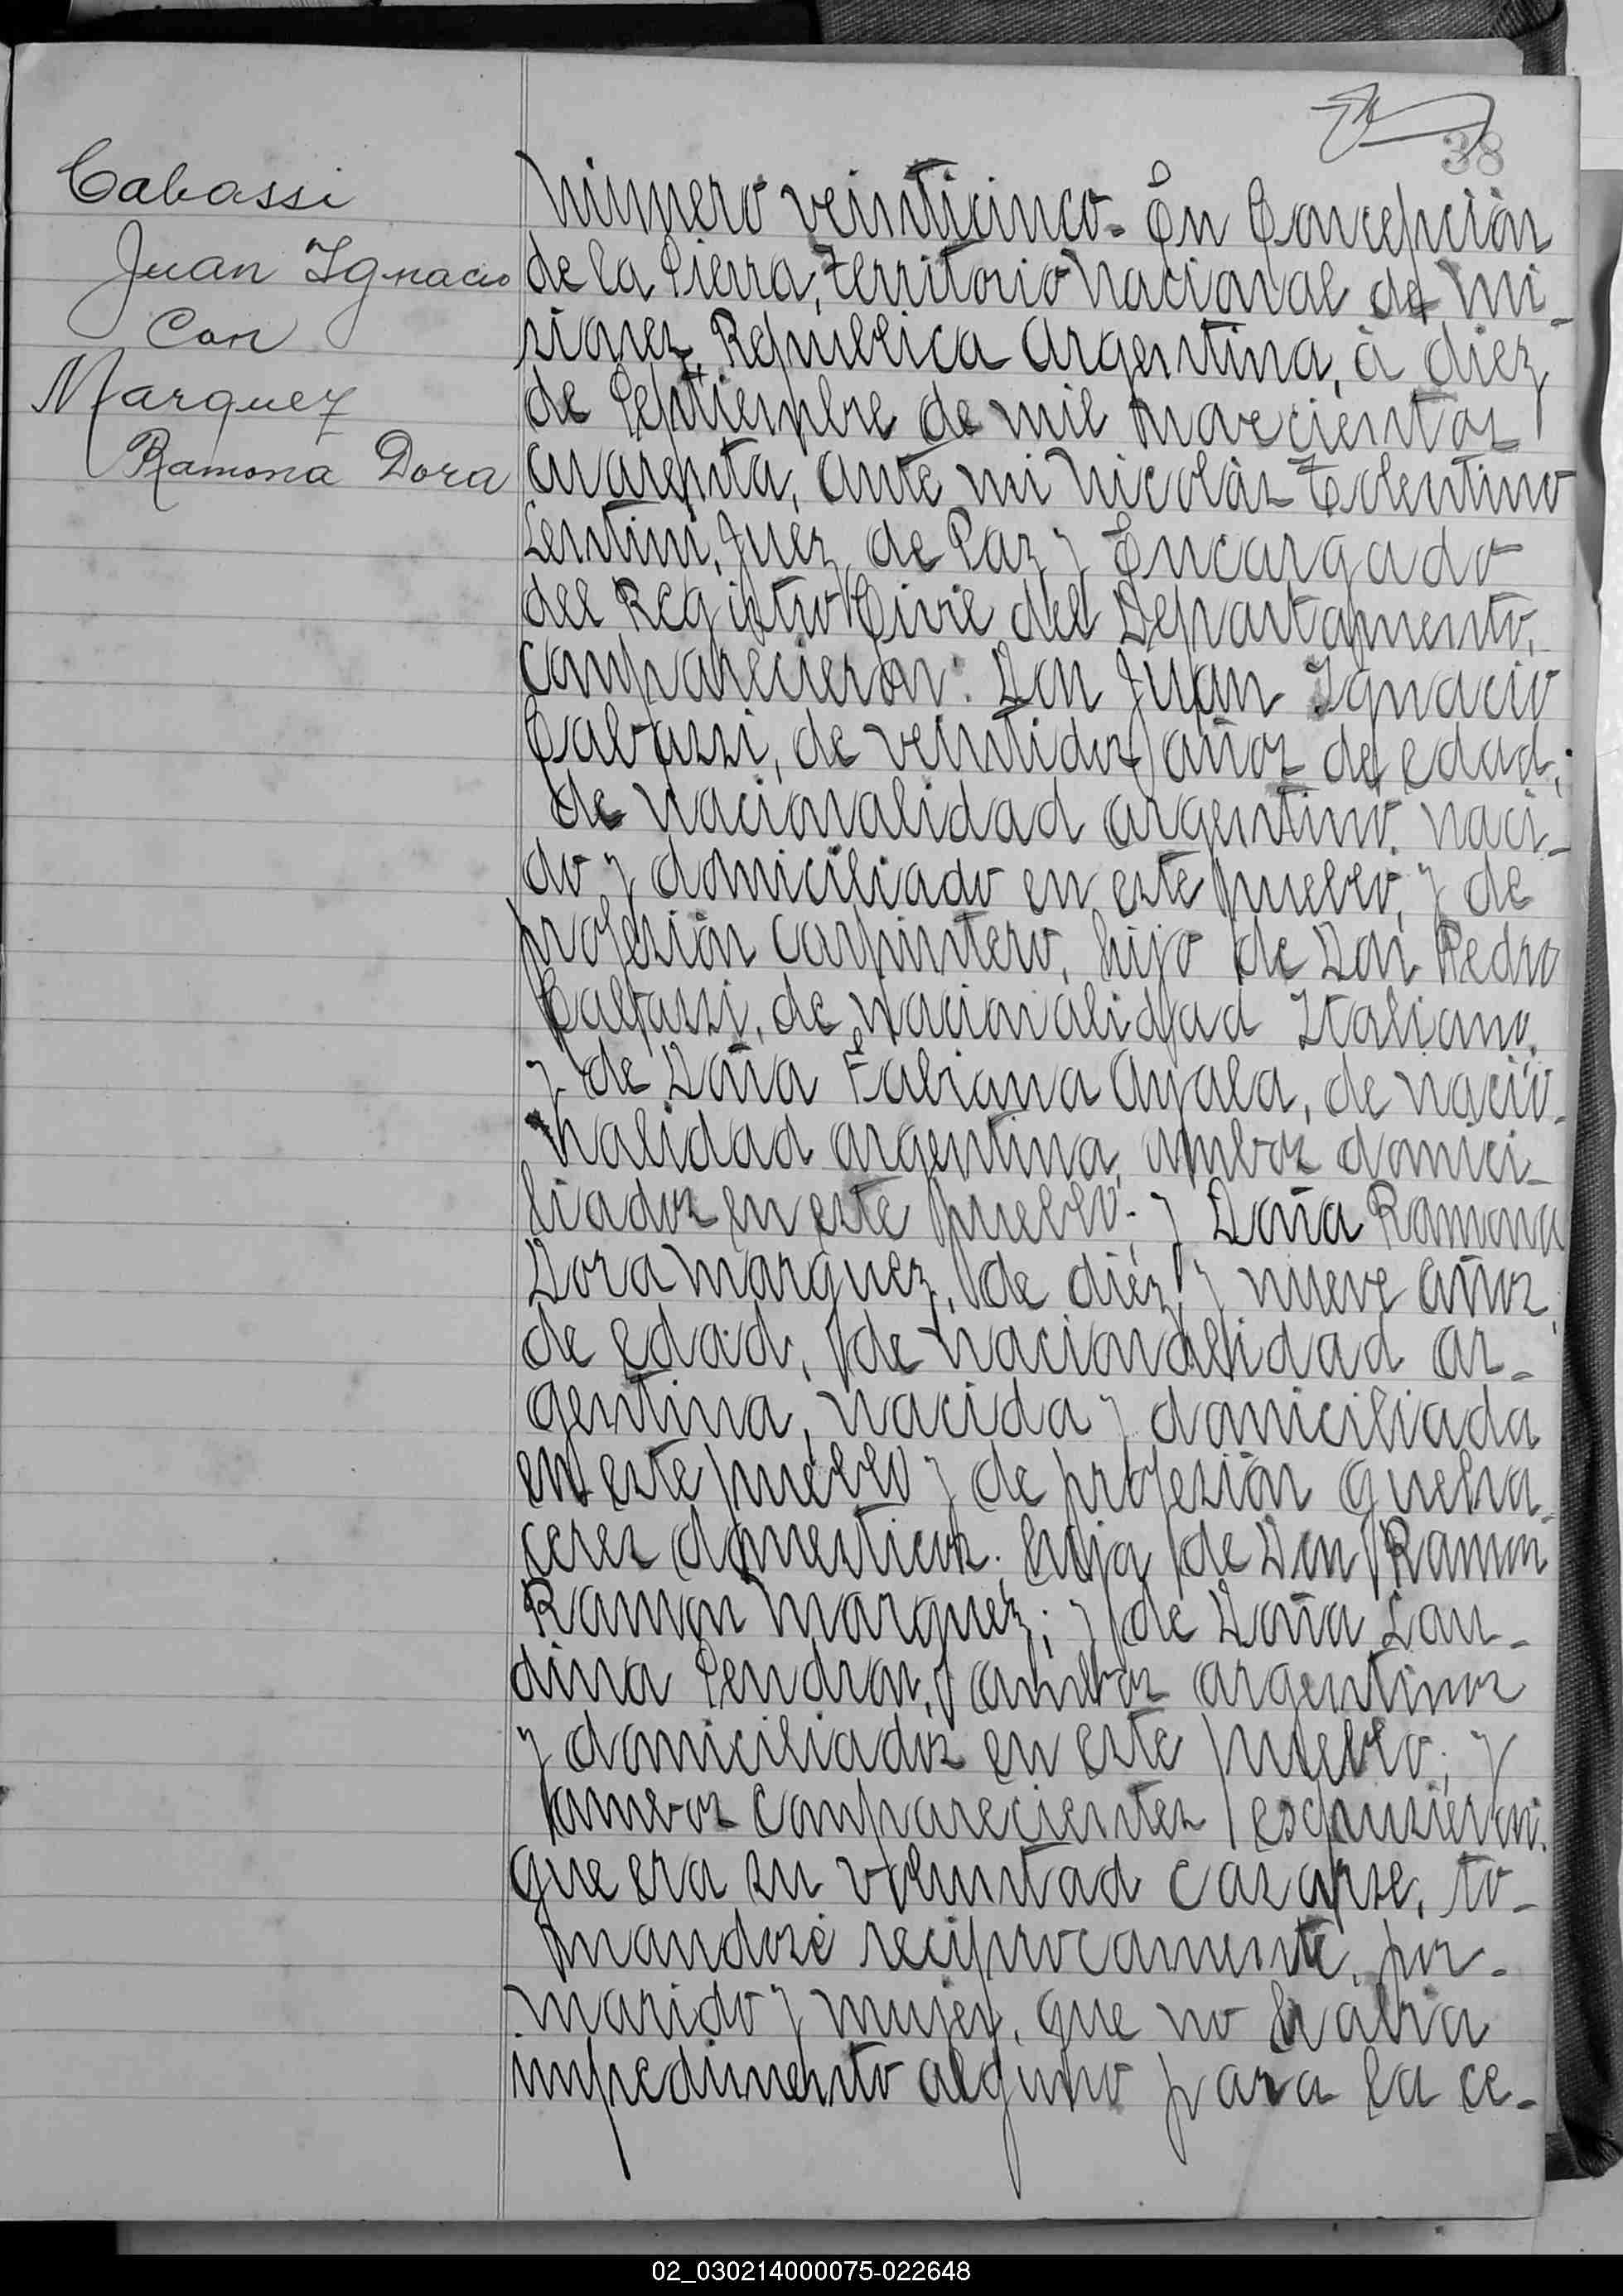 38
Cabassi
Juan Ignacio
Con
Marquez
Ramona Dora
Número veinticinco- En Concepción
de la Sierra, Territorio Nacional de Mi-
siones, República Argentina, à diez
de Septiembre de mil novecientos
cuarenta, ante mi Nicolás Tolentino
Sentini, Juez de Paz y Encargado
del Registro Civil del Departamento,
comparecieron: Don Juan Ignacio
Cabassi, de veintidos años de edad,
de nacionalidad argentino, naci-
do y domiciliado en este pueblo, y de
profesión carpintero, hijo de Don Pedro
Cabassi, de nacionalidad Italiano,
y de Doña Fabiana Ayala, de nacio-
nalidad argentina, ambos domici-
liados en este pueblo; y Doña Ramona
Dora Marquez, de diéz y nueve años
de edad, de nacionalidad ar-
gentina, nacida y domiciliada
en este pueblo y de profesión queha-
ceres domesticos, hija de Don Ramon
Ramon Marquez; y de Doña Lau-
dina , ambos argentinos
y domiciliados en este pueblo; y
ambos comparecientes espusieron:
que era su voluntad casarse, to-
mandose reciprocamente, por-
marido y mujer, que no habia
impedimento alguno para la ce-
02_030214000075-022648